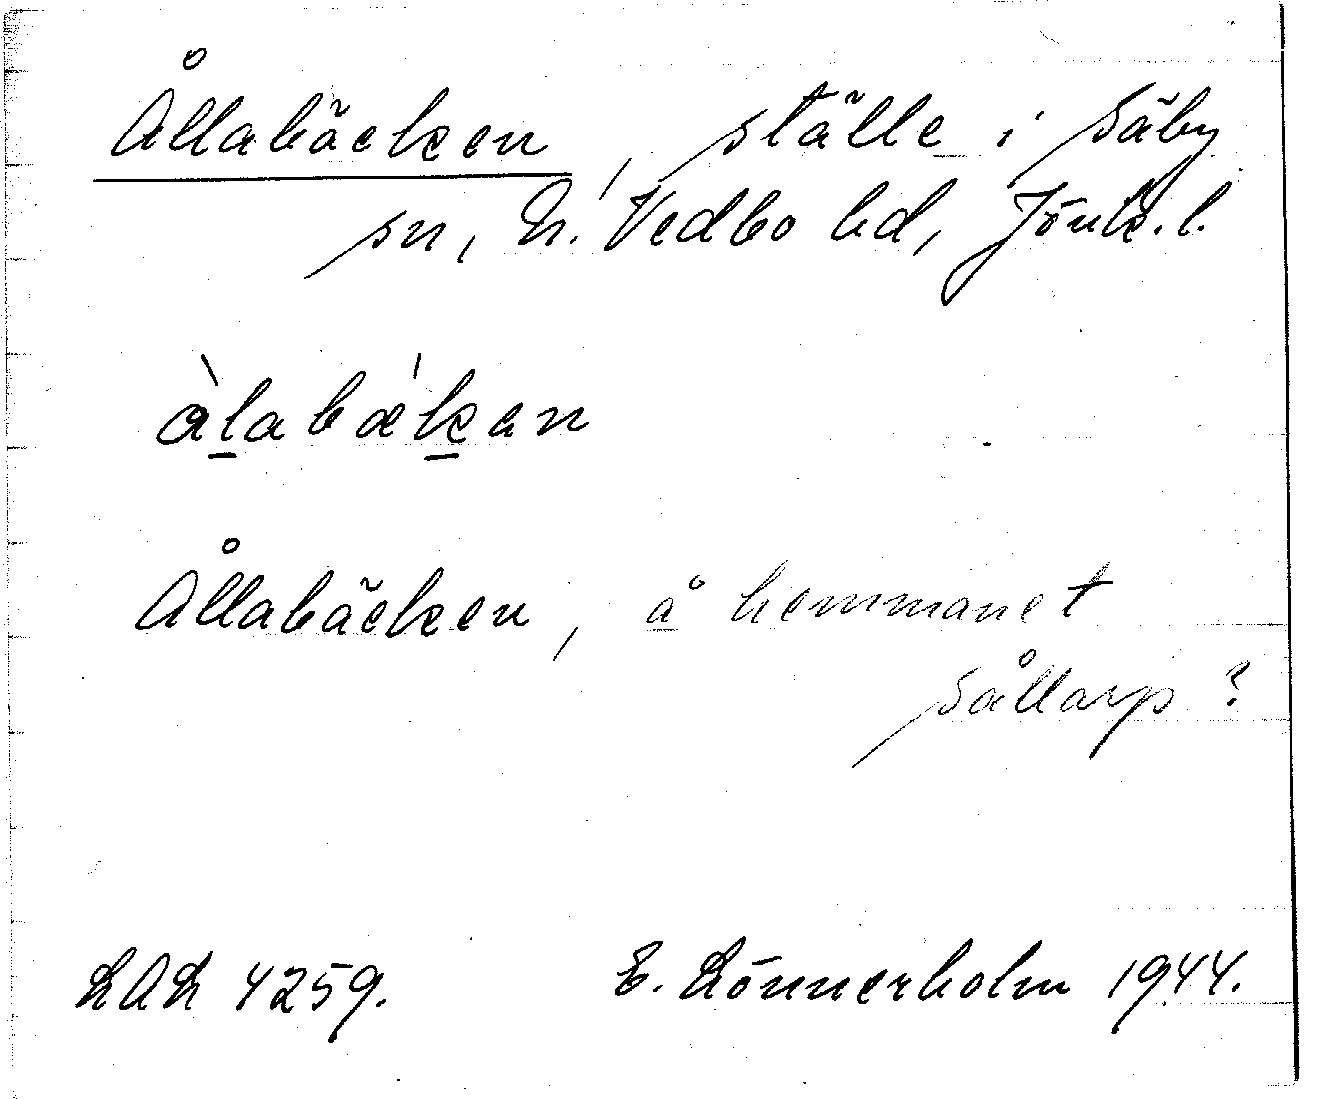 Ållabäcken, ställe i Säby
sn, N. Vedbo hd, Jönk. l.
àlabǽkan
Ållabäcken, å hemmanet
Sållarp?
LAL 4259. E. Lönnerholm 1944.